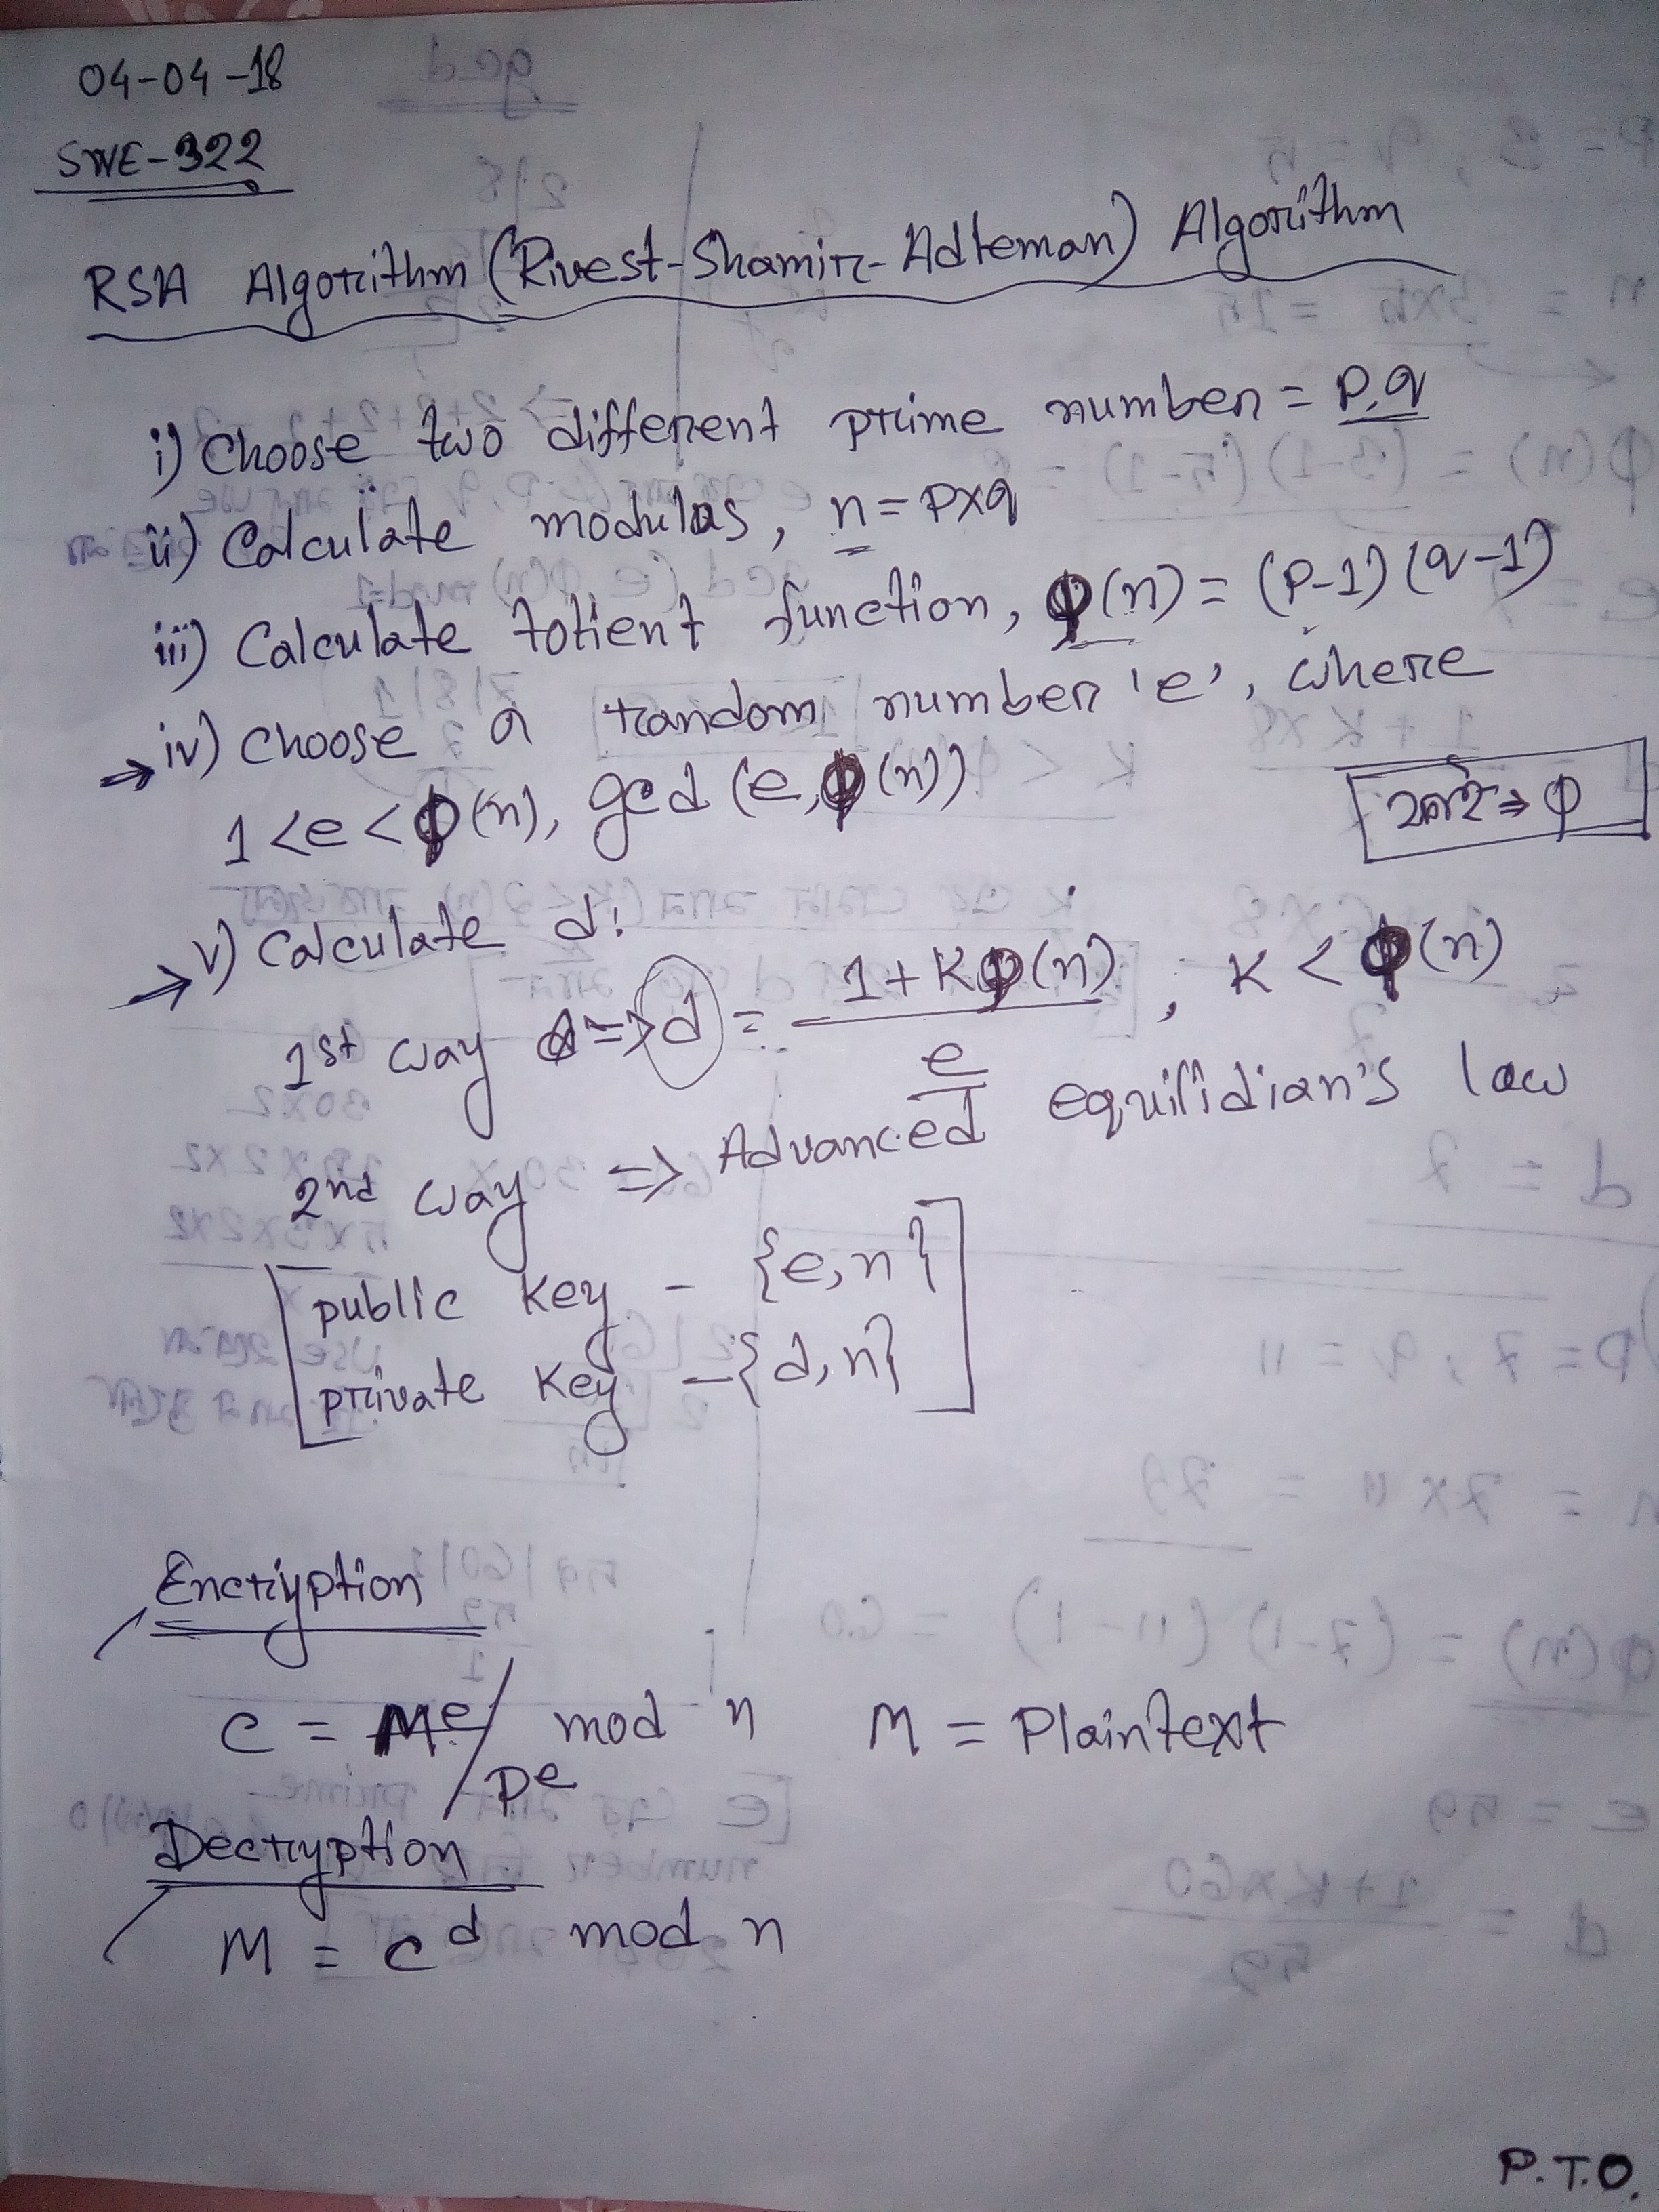 04-04-18
SWE-322
RSA Algorithm (Rivest-Shamir-Adleman) Algorithm
i) Choose two different prime number = p,q
ii) Calculate modulus, n = p×q
iii) Calculate totient function, φ(n) = (p-1)(q-1)
iv) Choose a random number 'e', where
1<e<φ(n), gcd (e,φ(n))
⇒ φ
v) Calculate d:
1st way => d = 1+Kφ(n) / e, K < φ(n)
2nd way => Advanced equilidian's law
public key - {e,n}
private key - {d,n}
Encryption
C = M^e / p^e mod n M = Plaintext
Decryption
M = C^d mod n
P.T.O.